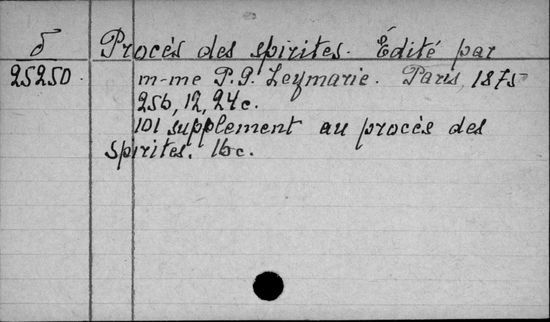 б Procès des spirites. Édité par
25250. m-me P. G. Leymarie. Paris, 1875
256, 12, 24 c.
101 supplement au procès des
spirites. 16 c.